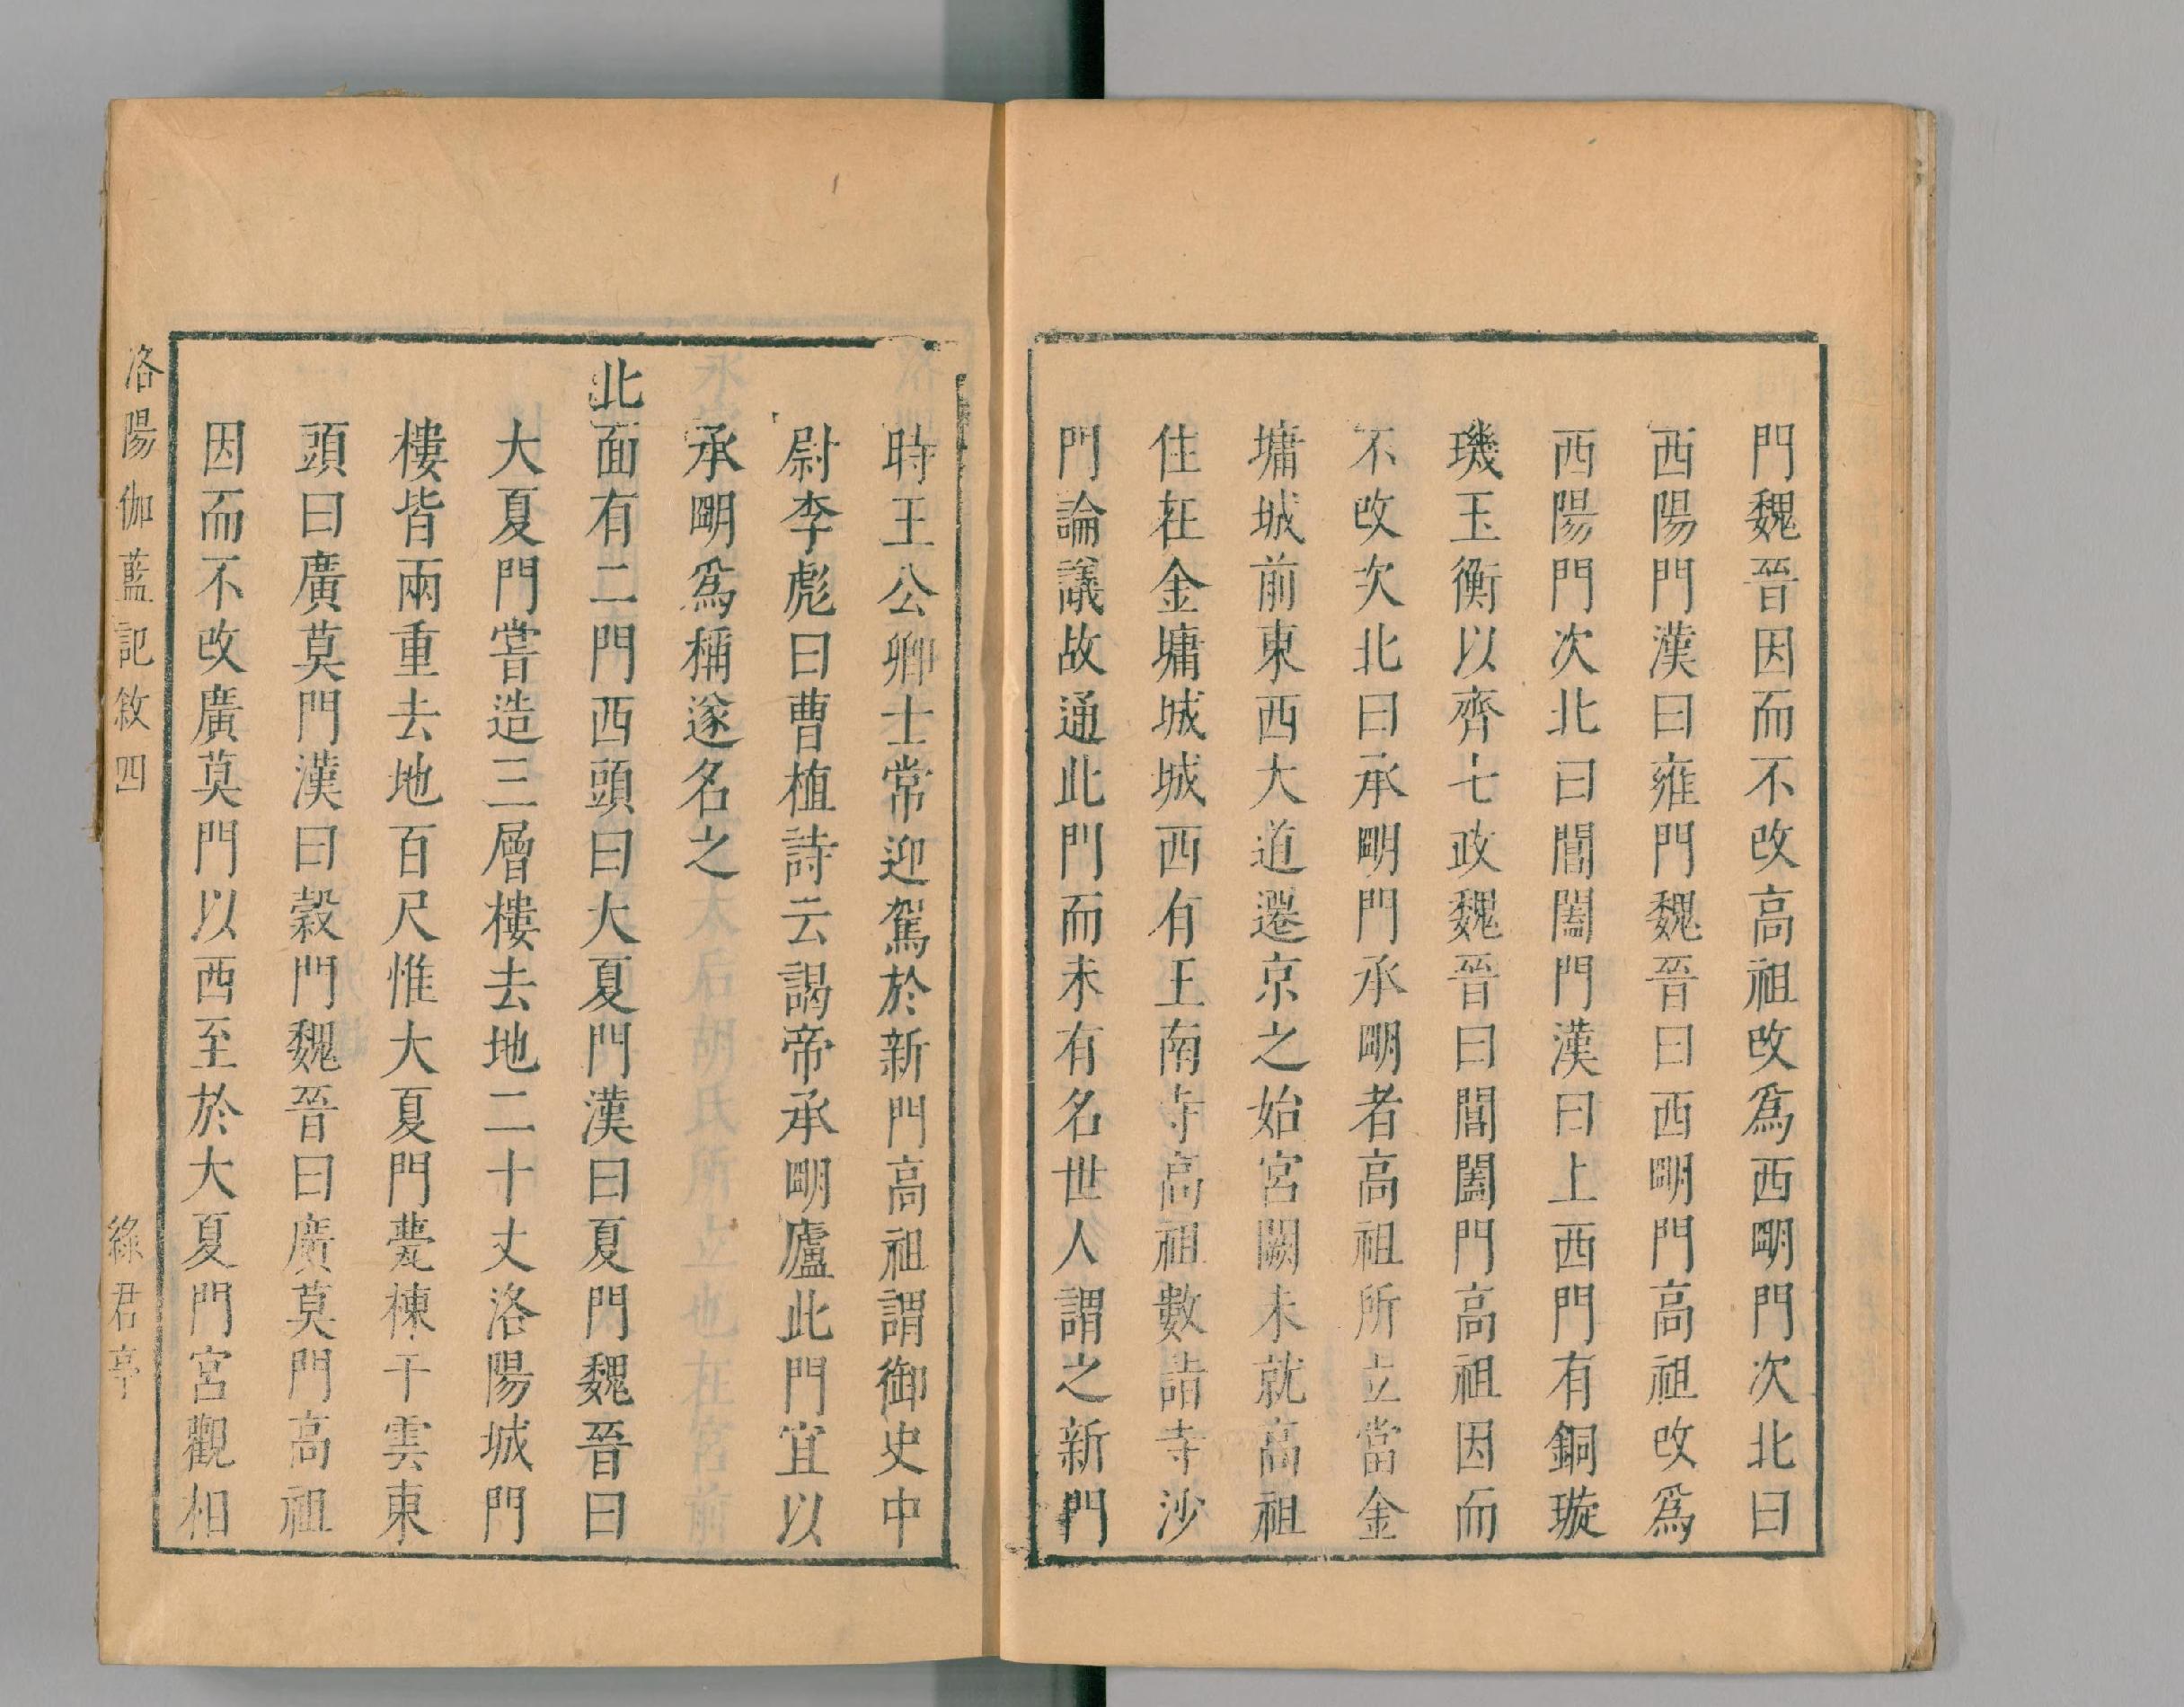 門魏晉因而不改高祖改爲西朙門次北曰
西陽門漢曰雍門魏晉曰西朙門高祖改爲
西陽門次北曰閶闔門漢曰上西門有銅璇
璣玉衡以齊七政魏晉曰閶闔門高祖因而
不改次北曰承朙門承朙者高祖所立當金
墉城前東西大道遷京之始宮闕未就高祖
住在金墉城城西有王南寺高祖數詣寺沙
門論議故通此門而未有名世人謂之新門
時王公卿士常迎駕於新門高祖謂御史中
尉李彪曰曹植詩云謁帝承朙廬此門宜以
承朙爲稱遂名之
北面有二門西頭曰大夏門漢曰夏門魏晉曰
大夏門嘗造三層樓去地二十丈洛陽城門
樓皆兩重去地百尺惟大夏門甍棟干雲東
頭曰廣莫門漢曰穀門魏晉曰廣莫門高祖
因而不改廣莫門以西至於大夏門宮觀相
洛陽伽藍記敘四
綠君亭